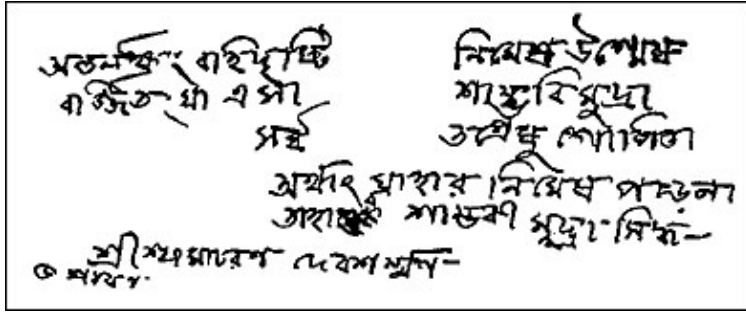 অন্তর্লক্ষ্যং বহিদৃষ্টি নিমেষ উন্মেষ
বর্জ্জিতং যা এসা শাম্ভবি মুদ্রা
সর্ব্ব তন্ত্রেষু গোপিতা
অর্থাৎ যাহার নিমেষ পড়েনা
শাম্ভবী মুদ্রা সিদ্ধ—
শ্রীশ্যামাচরণ দেবশর্ম্মণ—